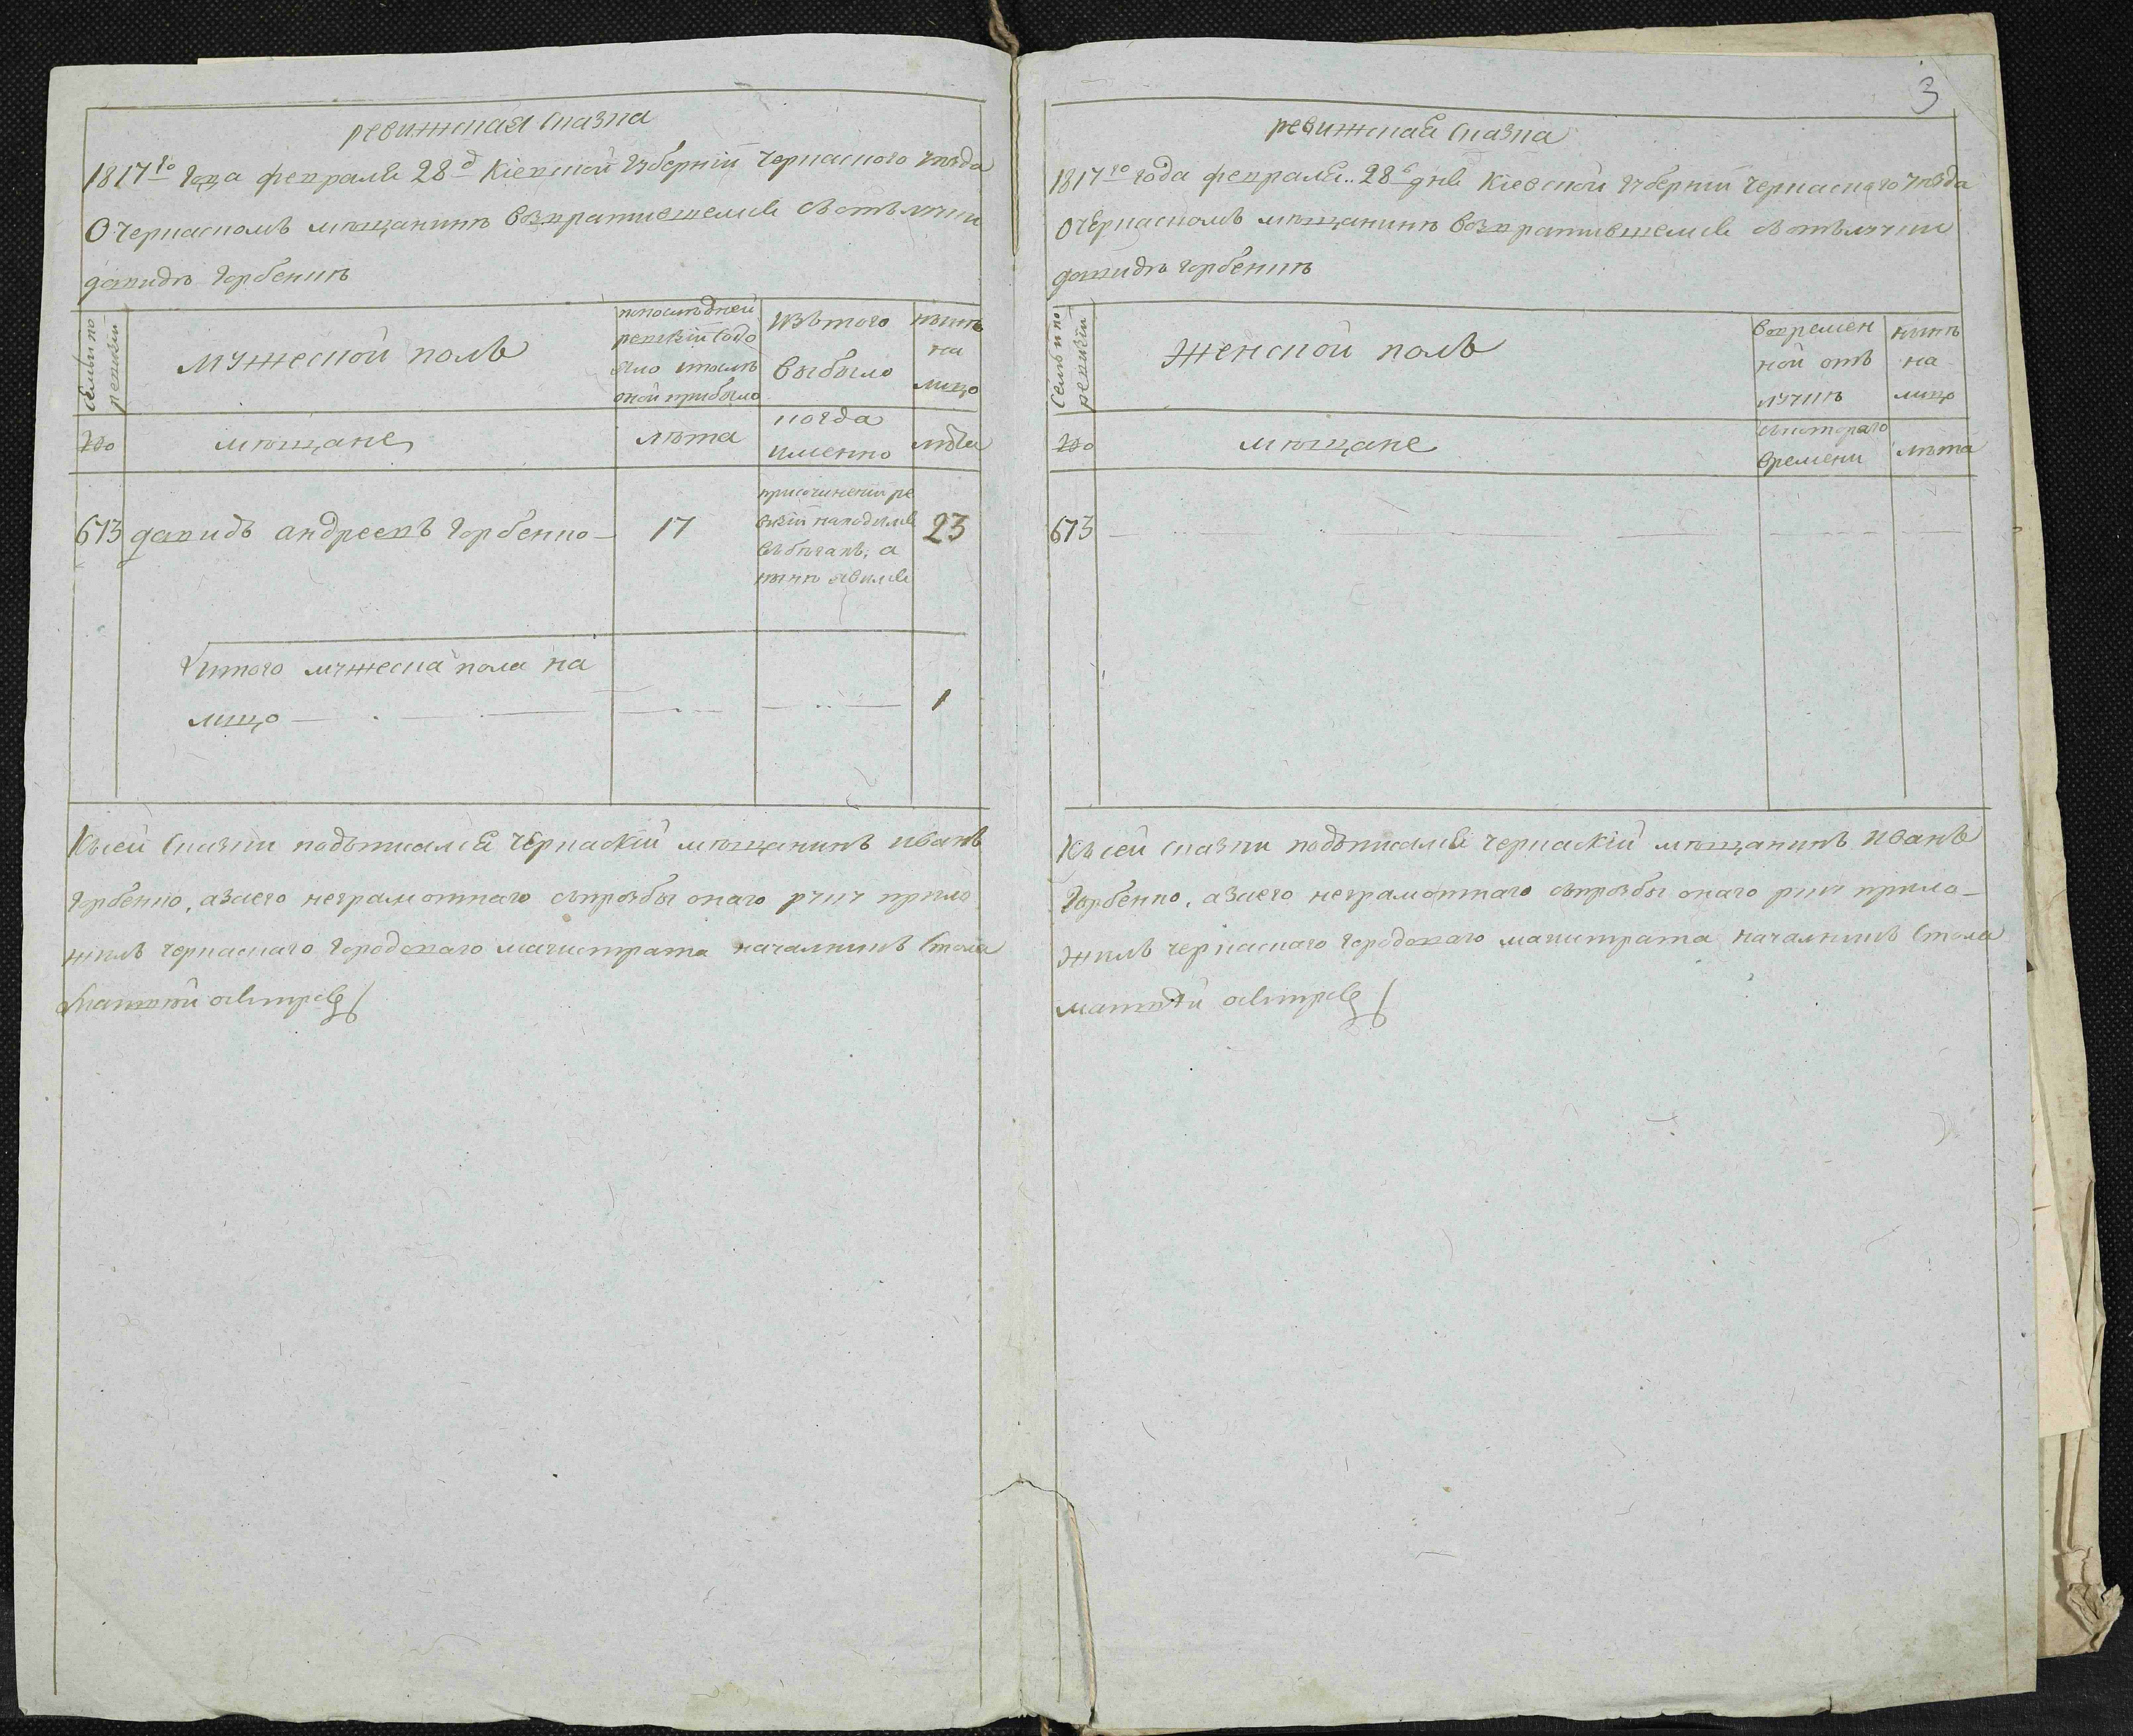 ревижская сказка
1817го года февраля 28д Кіевской губерніи Черкаского уезда
О черкаскомъ мѣщанинѣ возвратившемся съ отълучки
давидѣ Горбенкѣ
Семьи по ревизіи
мужеской полъ
по последней
ревизіи состо
яло и после
оной прибыло
изъ того
выбыло
нынѣ
на
лицо
№
мѣщане
лѣта
когда
именно
лѣта
673 давидъ андреевъ Горбенко — 17
при сочинении ре
визіи находился
въ бѣгахъ, а
нынѣ явился
23
Итого мужеска пола на
лицо — 1
Къ сей сказки подъписался черкаскій мѣщанинъ иванъ
Горбенко, а за его неграмотнаго съ прозбы онаго руку прило
жилъ черкаскаго городоваго магистрата началникъ стола
Матвей
3
ревижская сказка
1817го года февраля 28го дня Кіевской губерніи черкаскаго уезда
О черкаскомъ мѣщанинѣ возвратившемся съ отълучки
давидѣ горбенкѣ
Семьи по ревизіи
Женской полъ
во времен
ной отъ
лучкѣ
нинѣ
на
лицо
№
мѣщане
съ котораго
времени
лѣта
673
Къ сей сказки подъписался черкаскій мѣщанинъ иванъ
Горбенко, а за его неграмотнаго съ прозбы онаго руку прило-
жилъ черкаскаго городоваго магистрата началникъ стола
матвей